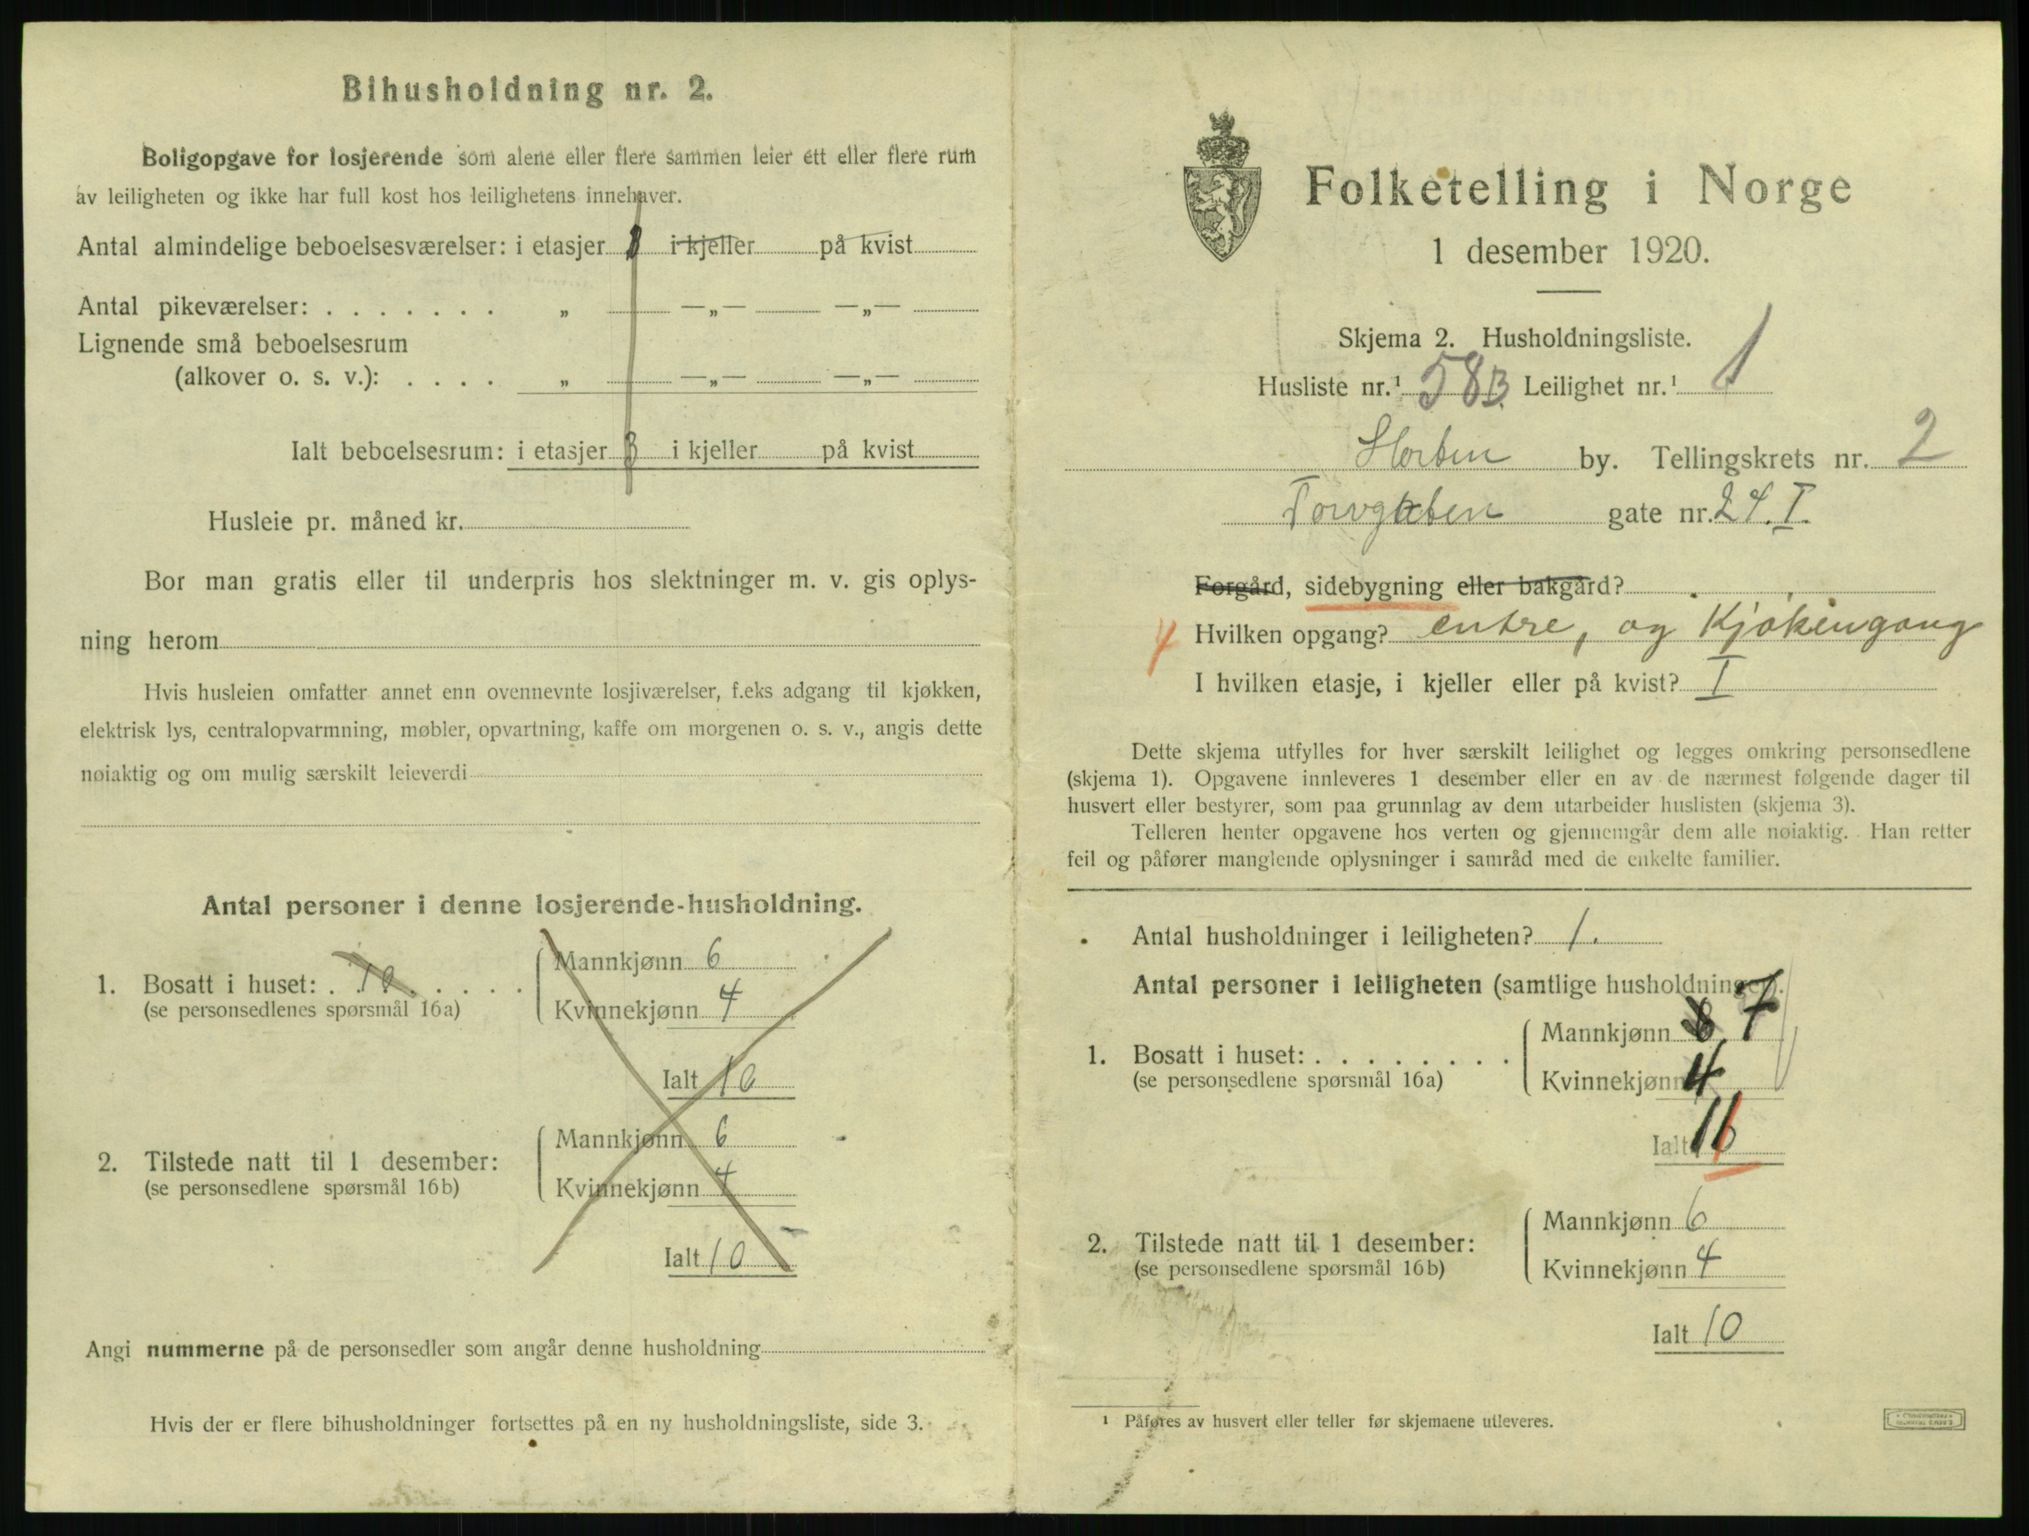 Bihusholdning nr. 2.
Boligopgave for losjerende som alene eller flere sammen leier ett eller flere rum
av leiligheten og ikke har full kost hos leilighetens innehaver.
Antal almindelige beboelsesværelser: i etasjer i kjeller på kvist
Antal pikeværelser: . . . . . . . „ —„— —„—
Lignende små beboelsesrum
(alkover o. s. v.): . . . . „ —„— —„—
Ialt beboelsesrum: i etasjer 3 i kjeller på kvist
Husleie pr. måned kr.
Bor man gratis eller til underpris hos slektninger m. v. gis oplys-
ning herom
Hvis husleien omfatter annet enn ovennevnte losjiværelser, f.eks adgang til kjøkken,
elektrisk lys, centralopvarmning, møbler, opvartning, kaffe om morgenen o. s. v., angis dette
nøiaktig og om mulig særskilt leieverdi
Antal personer i denne losjerende-husholdning.
1. Bosatt i huset: . 10 . . . . .
(se personsedlenes spørsmål 16a)
Mannkjønn 6
Kvinnekjønn 4
Ialt 10
2. Tilstede natt til 1 desember:
(se personsedlene spørsmål 16b)
Mannkjønn 6
Kvinnekjønn 4
Ialt 10
Angi nummerne på de personsedler som angår denne husholdning
Hvis der er flere bihusholdninger fortsettes på en ny husholdningsliste, side 3.
Folketelling i Norge
1 desember 1920.
Skjema 2. Husholdningsliste.
Husliste nr.¹ 58B. Leilighet nr.¹ 1
Horten by. Tellingskrets nr. 2
Torvgaten gate nr. 24. I.
Forgård, sidebygning eller bakgård?
Hvilken opgang? entre, og Kjøkengang
I hvilken etasje, i kjeller eller på kvist? I
Dette skjema utfylles for hver særskilt leilighet og legges omkring personsedlene
(skjema 1). Opgavene innleveres 1 desember eller en av de nærmest følgende dager til
husvert eller bestyrer, som paa grunnlag av dem utarbeider huslisten (skjema 3).
Telleren henter opgavene hos verten og gjennemgår dem alle nøiaktig. Han retter
feil og påfører manglende oplysninger i samråd med de enkelte familier.
Antal husholdninger i leiligheten? 1.
Antal personer i leiligheten (samtlige husholdninger).
1. Bosatt i huset: . . . . . . . .
(se personsedlene spørsmål 16a)
Mannkjønn 8 7
Kvinnekjønn 4
Ialt 11
2. Tilstede natt til 1 desember:
(se personsedlene spørsmål 16b)
Mannkjønn 6
Kvinnekjønn 4
Ialt 10
¹ Påføres av husvert eller teller før skjemaene utleveres.